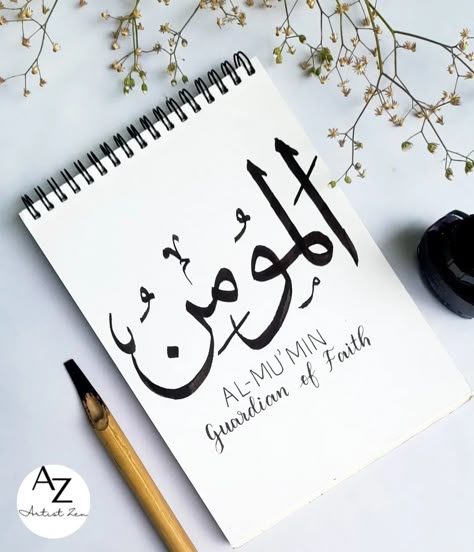 المؤمن
AL-MU'MIN
Guardian of Faith
AZ
Artist Zen